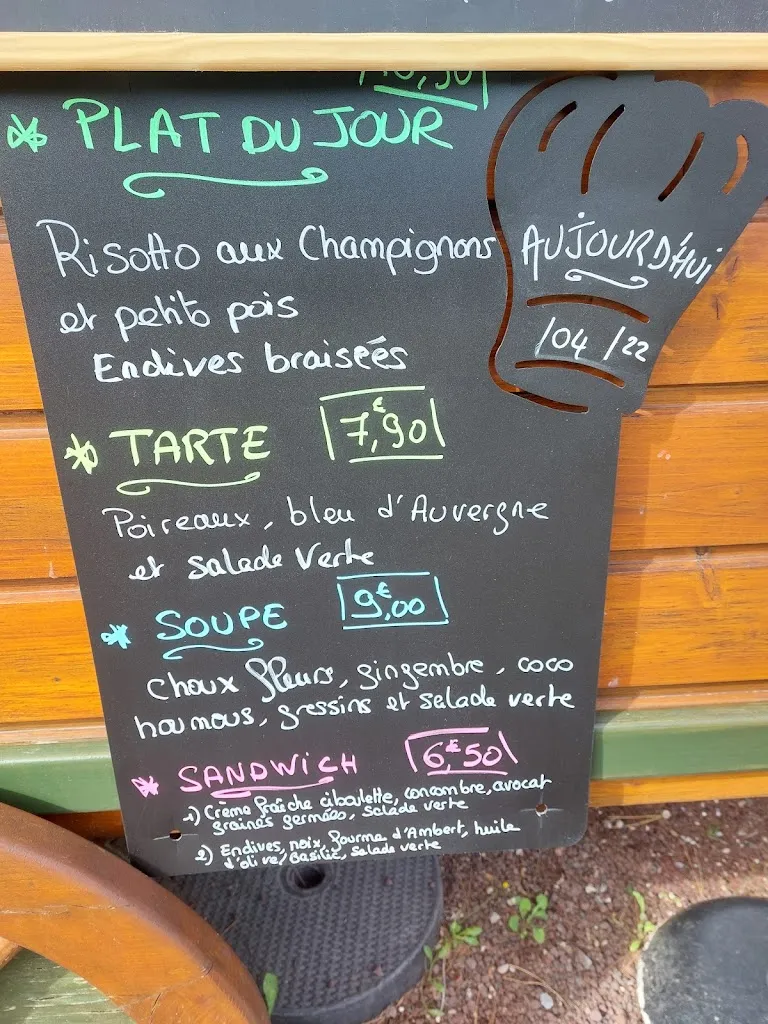 10,50
* PLAT DU JOUR
Risotto aux Champignons
et petits pois
Endives braisées
AUJOURD'HUI
/04 /22
* TARTE 7,€90
Poireaux, bleu d'Auvergne
et salade verte
* SOUPE 9,€00
Choux fleurs, gingembre, coco
houmous, gressins et salade verte
* SANDWICH 6,€50
1) Crème fraîche ciboulette, concombre, avocat
graines germées, salade verte
2) Endives, noix, fourme d'Ambert, huile
d'olive/basilic, salade verte